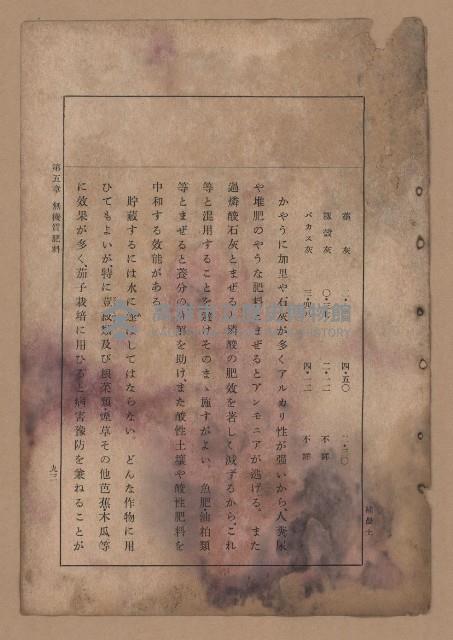 藁灰 四・五〇
籾殻灰 二・一二 不詳
バカス灰 四・一二 不詳
かやうに加里や石灰が多くアルカリ性が强いから人糞尿
や堆肥のやうな肥料とまぜるとアンモニアが逃げる、また
過燐酸石灰とまぜると燐酸の肥效を著しく減ずるから、これ
等と混用することを避けそのまゝ施すがよい、魚肥油粕類
等とまぜると養分の分解を助け、また酸性土壤や酸性肥料を
中和する效能がある。
貯藏するには水に ってはならない、どんな作物に用
ひてもよいが、特に荳菽類及び根菜類煙草その他芭蕉木瓜等
に效果が多く、茄子栽培に用ひると病害豫防を兼ねることが
第五章 無機質肥料
九三
高雄市立歷史博物館